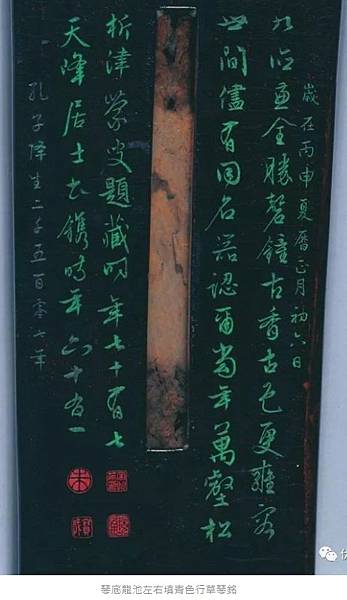 歲在丙申夏曆正月初六日
九德兼全勝磬鐘古香古色更雍容
世間儘有同名器認爾當年萬壑松
析津蒙叟題藏时年七十有七
天峰居士書鐫時年六十有一
孔子降生二千五百零七年
朱
琴底龍池左右填青色行草琴銘